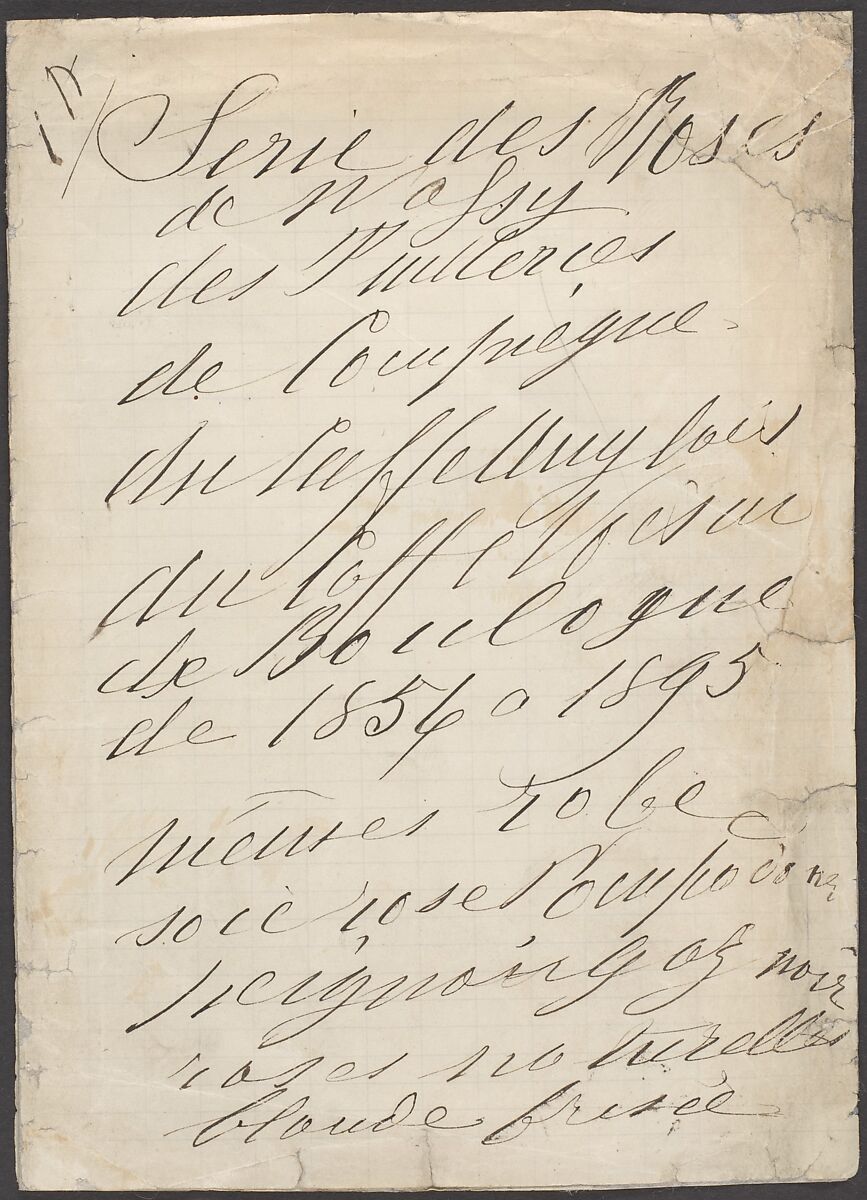 Serie des Roses
de Passy
des Tuilleries
de Compiègne
du Caffe Anglais
du Caffe Voisin
de Boulogne
de 1856 a 1895
mêmes robe
soie rose Pompadour
peignoir gaz noir
roses naturelles
blonde frisée